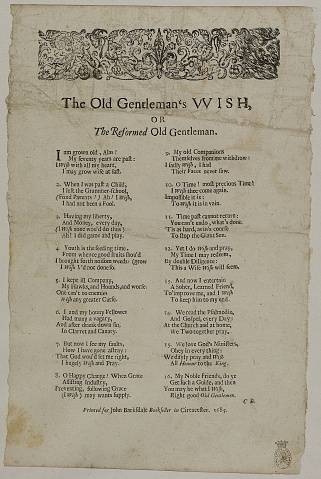 The Old Gentleman's WISH,
OR
The Reformed Old Gentleman.
I am grown old, Alas!
My seventy years are past:
I Wish with all my heart,
I may grow wise at last.
2. When I was past a Child,
I left the Grammer-school,
(Fond Parents!) Ah! I Wish,
I had not been a Fool.
3. Having my liberty,
And Money, every day,
(I Wish none wou'd do thus)
Ah! I did game and play.
4. Youth is the seeding time,
From whence good fruits shou'd
I brought forth noisom weeds: (grow
I Wish I'd not done so.
5. I kept ill Company,
My Hawks, and Hounds, and worse:
One can't to enemies
Wish any greater Curse.
6. I and my boony Fellowes
Had many a vagary,
And after drank down sin,
In Clarret and Canary.
7. But now I see my faults,
How I have gone astray:
That God wou'd set me right,
I hugely Wish and Pray.
8. O Happy Change! When Grace
Assisting Industry,
Preventing, following Grace
(I Wish) may wants supply.
9. My old Companions
Themselves from me withdrew:
I sadly Wish, I had
Their Faces never saw.
10. O Time! most precious Time!
I Wish thee come again.
Impossible it is:
To Wish it is in vain.
11. Time past cannot return:
You can't undo, what's done.
'Tis as hard, as to course
To stop the fleet Sun.
12. Yet I do Wish and pray,
My Time I may redeem,
By double Diligence:
This a Wise Wish will seem.
13. And now I entertain
A sober, Learned Friend,
To improve me, and I Wish
To keep him to my end.
14. We read the Psalmodia,
And Gospel, every Day:
At the Church and at home,
We Two together pray.
15. We love God's Ministers,
Obey in every thing:
We dayly pray and Wish
All Honour to the King.
16. My Noble Friends, do ye
Get such a Guide, and then
You may be what I Wish,
Right good Old Gentlemen.
C B.
Printed for John Barksdale Bookseller in Cirencester. 1685.